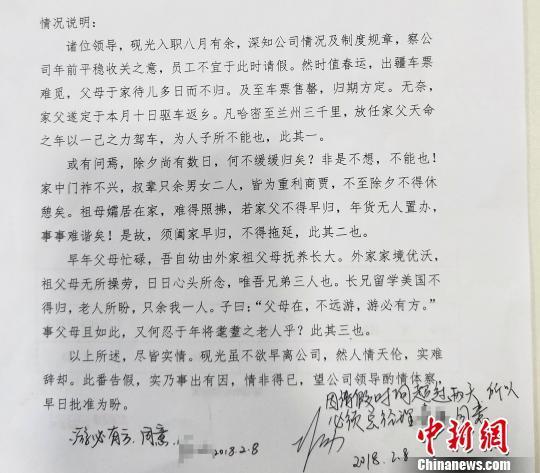 情况说明：
诸位领导，砚光入职八月有余，深知公司情况及制度规章，察公
司年前平稳收关之意，员工不宜于此时请假。然时值春运，出疆车票
难觅，父母于家待儿多日而不归。及至车票售罄，归期方定。无奈，
家父遂定于本月十日驱车返乡。凡哈密至兰州三千里，放任家父天命
之年以一己之力驾车，为人子所不能也，此其一。
或有问焉，除夕尚有数日，何不缓缓归矣？非是不想，不能也！
家中门祚不兴，叔辈只余男女二人，皆为重利商贾，不至除夕不得休
憩矣。祖母孀居在家，难得照拂，若家父不得早归，年货无人置办，
事事难谐矣！是故，须阖家早归，不得拖延，此其二也。
早年父母忙碌，吾自幼由外家祖父母抚养长大。外家家境优沃，
祖父母无所操劳，日日心头所念，唯吾兄弟三人也。长兄留学美国不
得归，老人所盼，只余我一人。子曰：“父母在，不远游，游必有方。”
事父母且如此，又何忍于年将耄耋之老人乎？此其三也。
以上所述，尽皆实情。砚光虽不欲早离公司，然人情天伦，实难
辞却。此番告假，实乃事出有因，情非得已，望公司领导酌情体察，
早日批准为盼。
因请假时间超过两天，所以
必须总经理 同意
游必有方，同意。
2018.2.8
2018.2.8
中新网
Chinanews.com